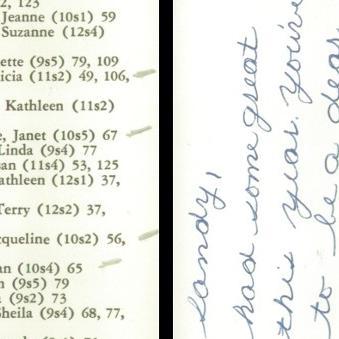 2, 123
Jeanne (10s1) 59
Suzanne (12s4)
ette (9s5) 79, 109
icia (11s2) 49, 106,
Kathleen (11s2)
e, Janet (10s5) 67
Linda (9s4) 77
an (11s4) 53, 125
athleen (12s1) 37,
Terry (12s2) 37,
cqueline (10s2) 56,
an (10s4) 65
n (9s5) 79
a (9s2) 73
Sheila (9s4) 68, 77,
Sandy,
had some great
this year. you've
to be a dear